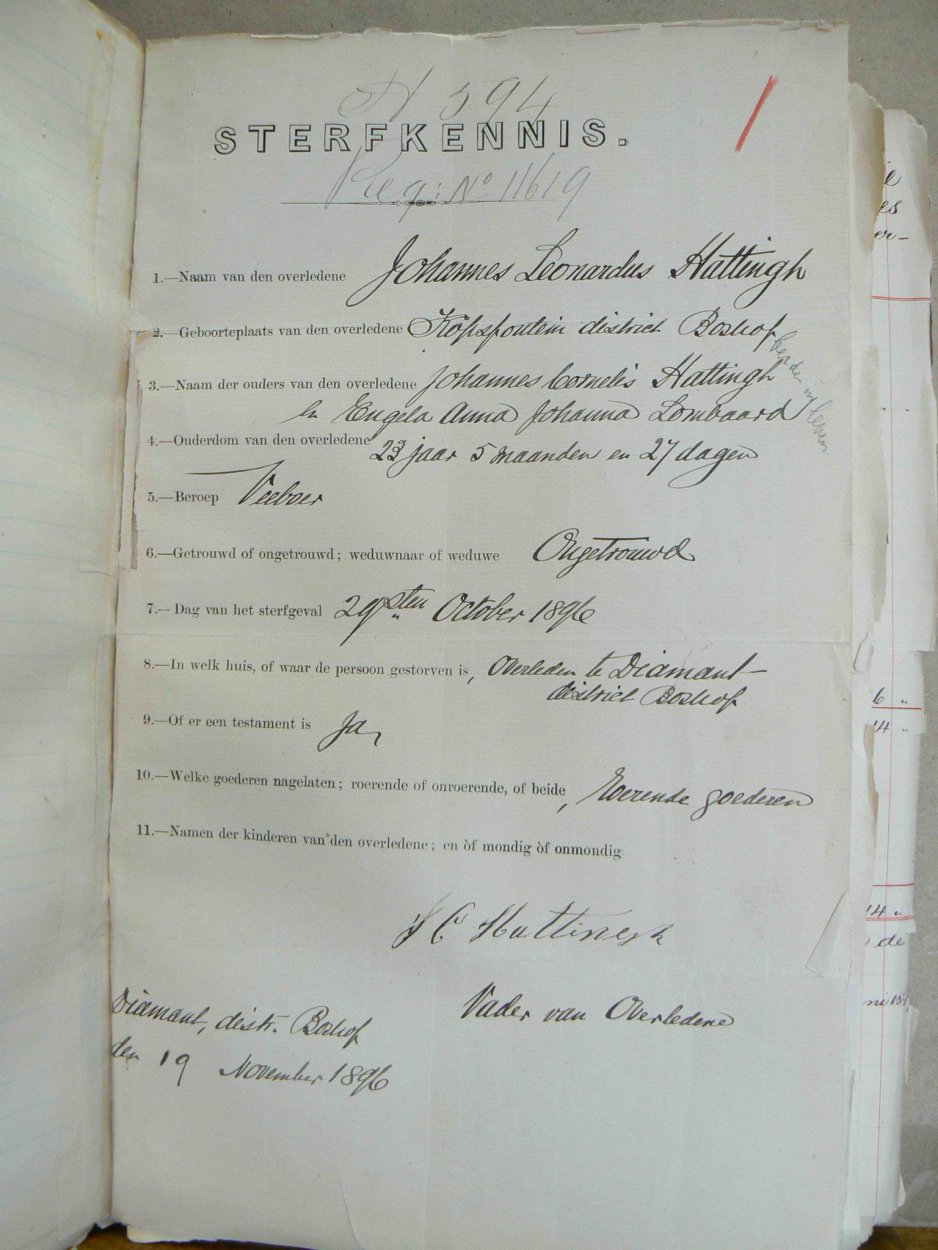 H 594
STERFKENNIS.
Reg: No 11619
1.—Naam van den overledene Johannes Leonardus Hattingh
2.—Geboorteplaats van den overledene Kopsfontein district Boshof
3.—Naam der ouders van den overledene Johannes Cornelis Hattingh
en Engela Anna Johanna Lombaard
beiden in leven
4.—Ouderdom van den overledene 23 jaar 5 maanden en 27 dagen
5.—Beroep Veeboer
6.—Getrouwd of ongetrouwd; weduwnaar of weduwe Ongetrouwd
7.—Dag van het sterfgeval 29sten October 1896
8.—In welk huis, of waar de persoon gestorven is, Overleden te Diamant
district Boshof
9.—Of er een testament is Ja,
10.—Welke goederen nagelaten; roerende of onroerende, of beide, Roerende goederen
11.—Namen der kinderen van den overledene; en òf mondig òf onmondig
J C Hattingh
Vader van Overledene
Diamant, distr. Boshof
den 19 November 1896